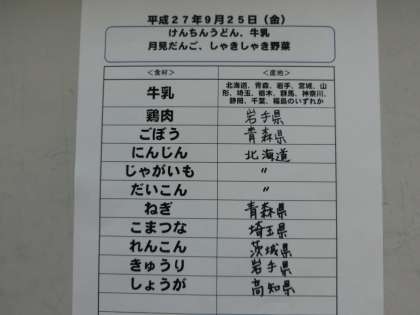 平成27年9月25日（金）
けんちんうどん、牛乳
月見だんご、しゃきしゃき野菜
＜食材＞ ＜産地＞
牛乳 北海道、青森、岩手、宮城、山
形、埼玉、栃木、群馬、神奈川、
静岡、千葉、福島のいずれか
鶏肉 岩手県
ごぼう 青森県
にんじん 北海道
じゃがいも 〃
だいこん 〃
ねぎ 青森県
こまつな 埼玉県
れんこん 茨城県
きゅうり 岩手県
しょうが 高知県